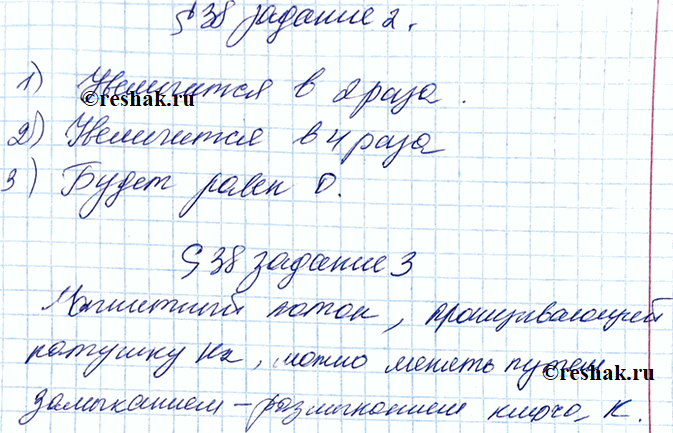 § 38 задание 2.
1) Увеличится в 2 раза.
©reshak.ru
2) Увеличится в 4 раза
3) Будет равен 0.
§ 38 задание 3
Магнитный поток, пронизывающей
катушку К2, можно менять путем
©reshak.ru
замыканием – размыканием ключа К.